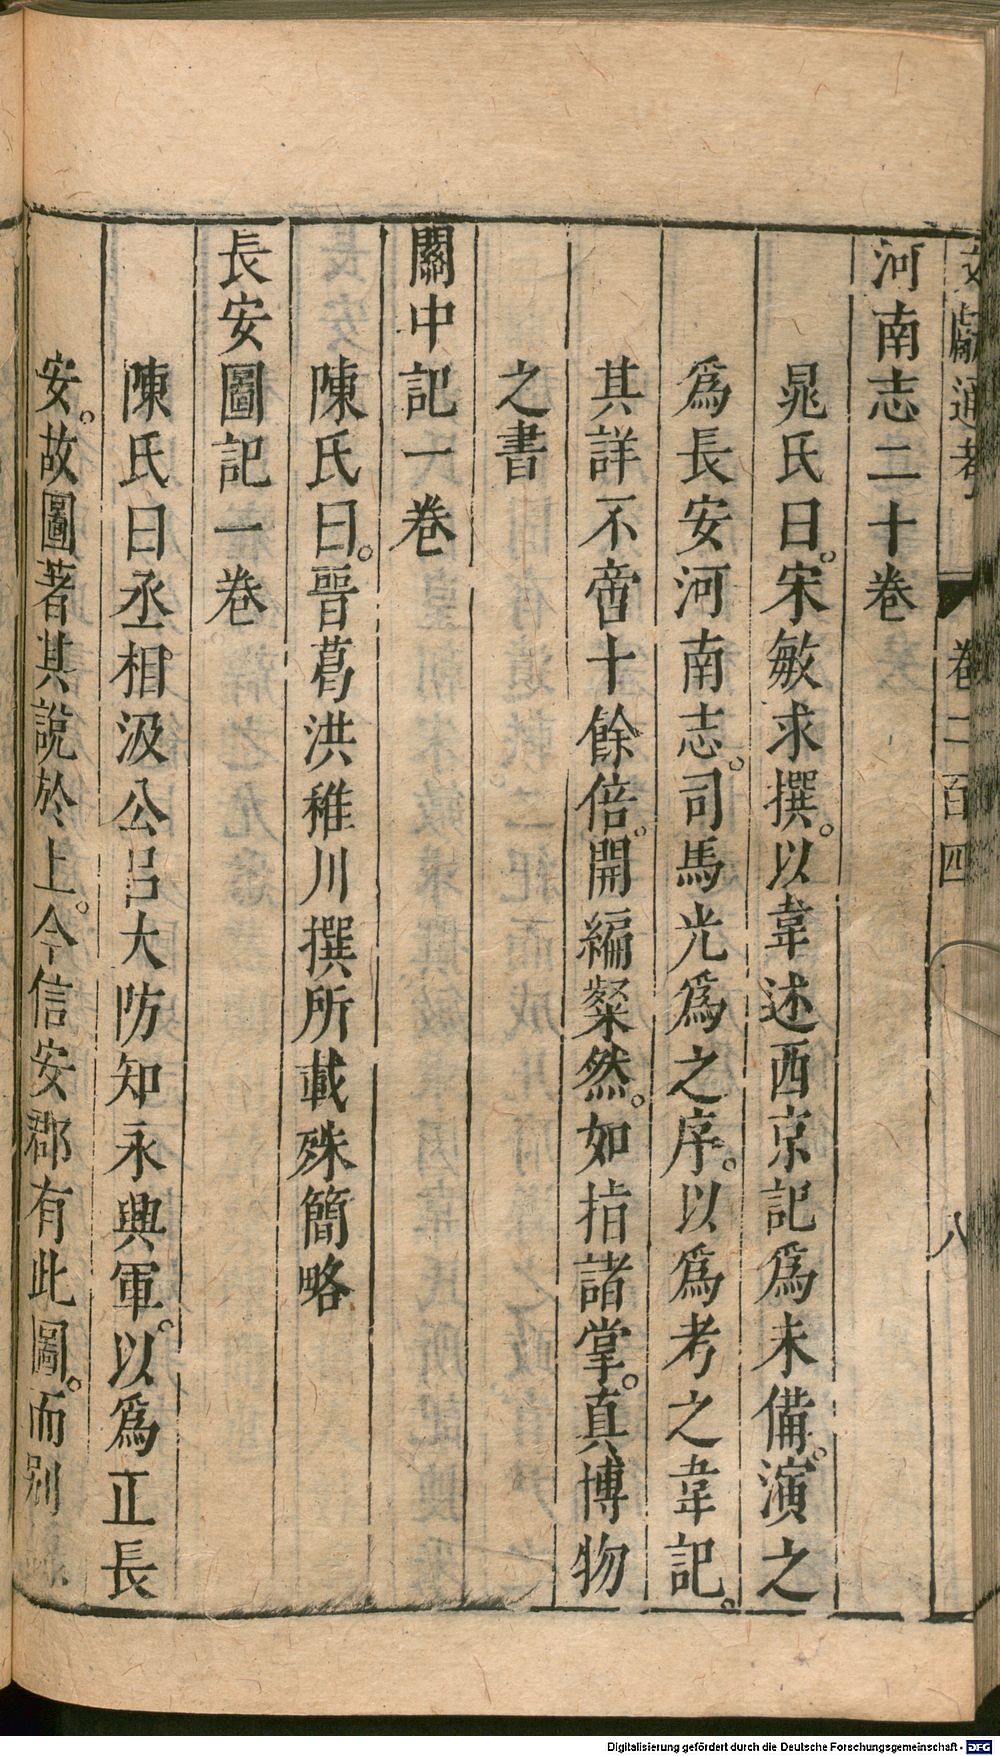 文獻通考 卷二百四 八
河南志二十卷
晁氏曰。宋敏求撰。以韋述西京記爲未備。演之
爲長安河南志。司馬光爲之序。以爲考之韋記。
其詳不啻十餘倍。開編粲然。如指諸掌。真博物
之書
關中記一卷
陳氏曰。晉葛洪稚川撰所載殊簡略
長安圖記一卷。
陳氏曰丞相汲公吕大防知永興軍。以爲正長
安。故圖著其說於上。今信安郡有此圖。而別
Digitalisierung gefördert durch die Deutsche Forschungsgemeinschaft - DFG